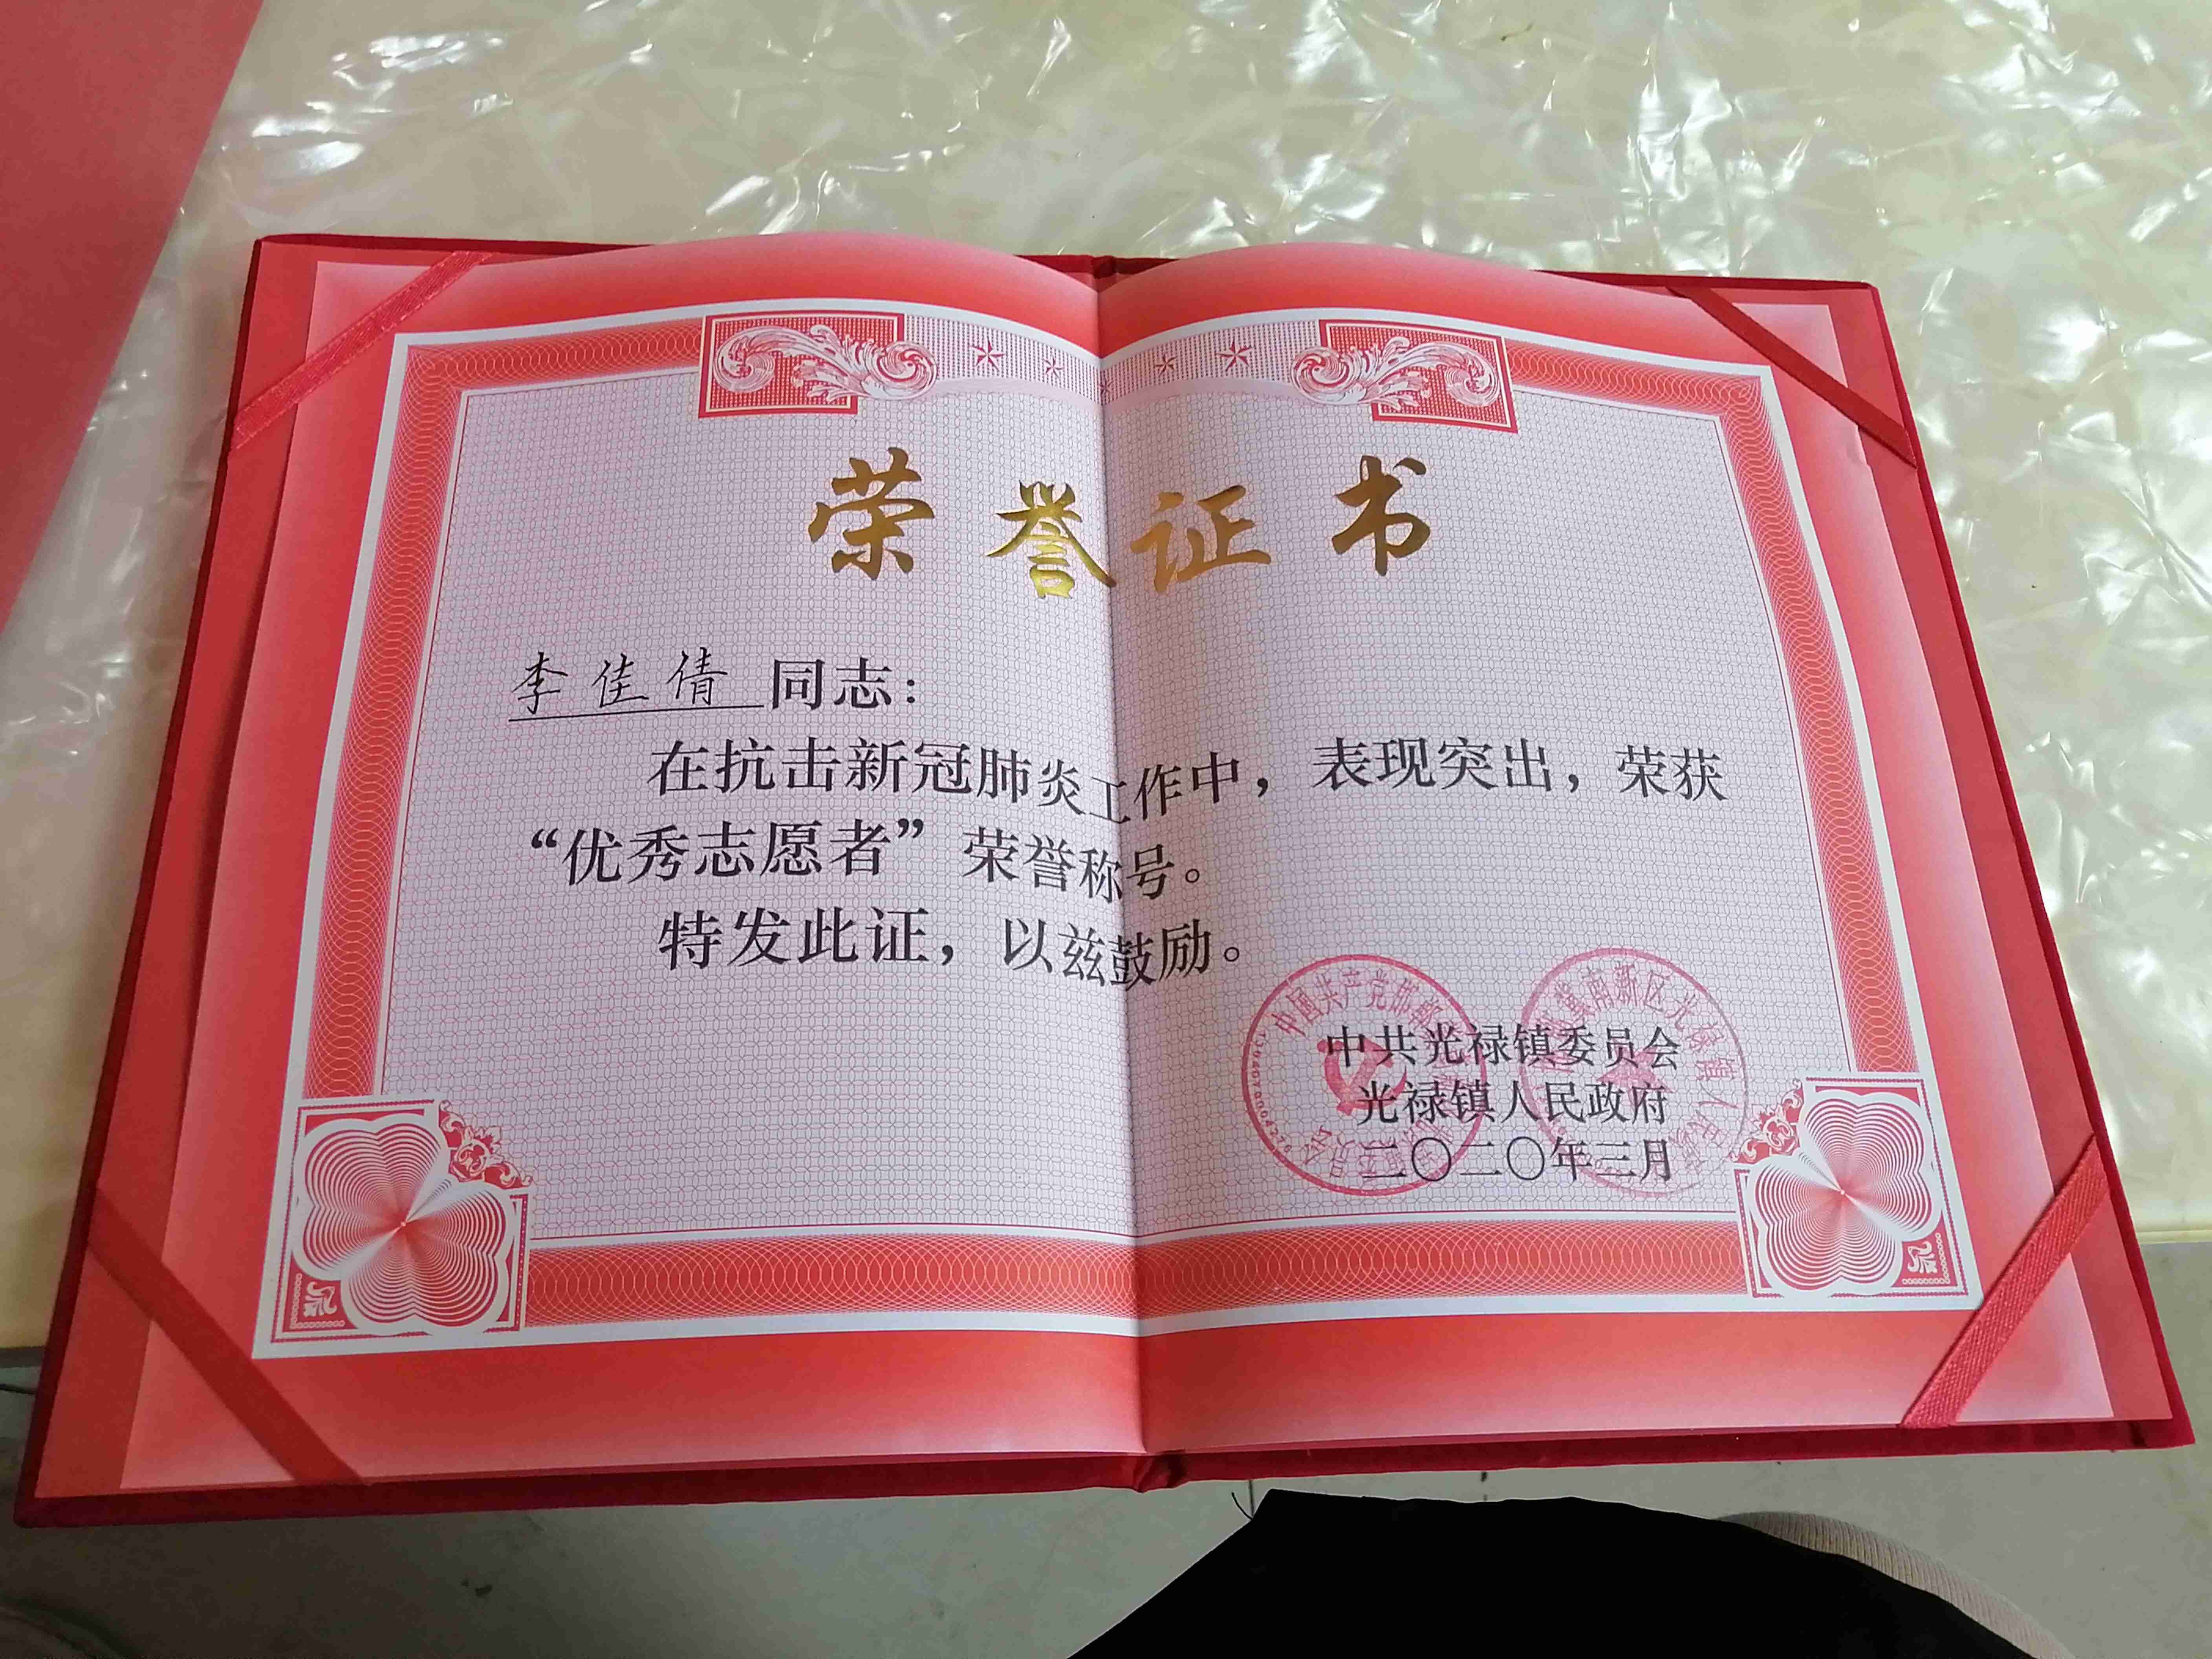 荣誉证书
李佳倩 同志：
在抗击新冠肺炎工作中，表现突出，荣获
“优秀志愿者”荣誉称号。
特发此证，以兹鼓励。
中共光禄镇委员会
光禄镇人民政府
二〇二〇年三月